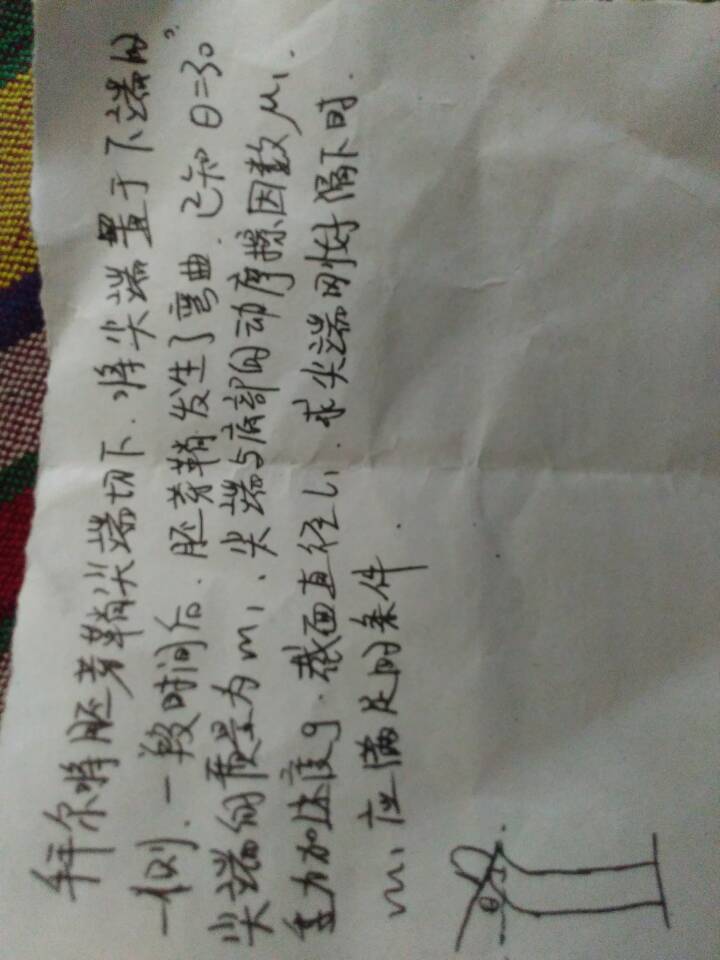 拜尔将胚芽鞘尖端切下.将尖端置于下端的
一侧.一段时间后.胚芽鞘发生了弯曲.已知θ=30°
尖端的质量为m、尖端与底部的动摩擦因数μ、
重力加速度g.截面直径L、求尖端刚好滑下时.
m、应满足的条件.
θ